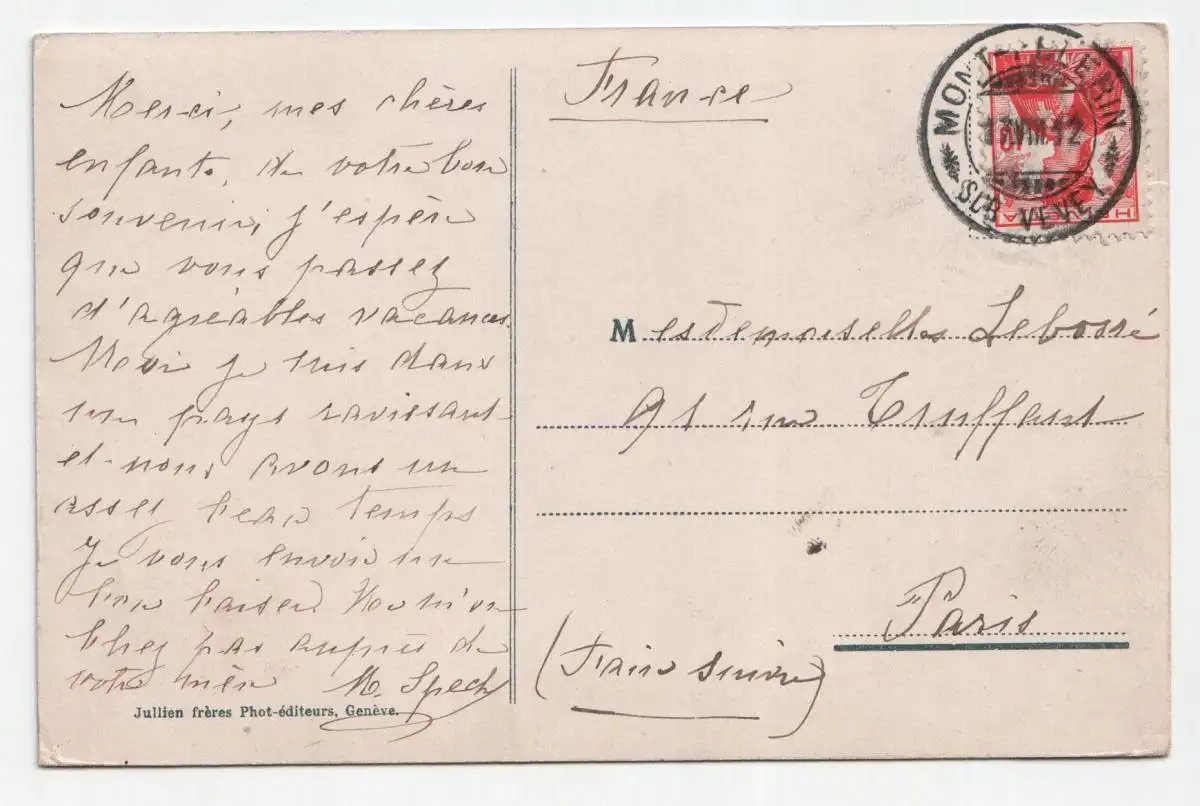 Merci, mes chères
enfants, de votre bon
souvenir, j'espère
que vous passez
d'agréables vacances.
Moi je suis dans
un pays ravissant
et nous avons un
assez beau temps
Je vous envoie un
bon baiser. Ne m'ou
bliez pas auprès de
votre mère M. Spech
Jullien frères Phot-éditeurs, Genève.
France
MONT-PÉLERIN
VIII.12
SUR VEVEY
Mesdemoiselles Lebossé
91 rue Truffaut
Paris
(Faire suivre)